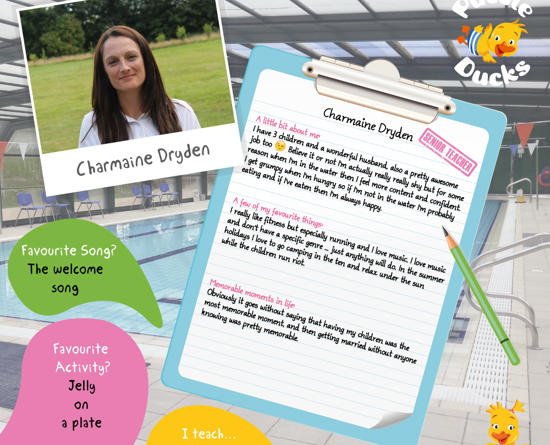 Puddle
Ducks
Charmaine Dryden
Charmaine Dryden
SENIOR TEACHER
A little bit about me:
I have 3 children and a wonderful husband, also a pretty awesome
job too Believe it or not I'm actually really really shy but for some
reason when I'm in the water then I feel more content and confident.
I get grumpy when I'm hungry so if I'm not in the water I'm probably
eating and if I've eaten then I'm always happy.
A few of my favourite things:
I really like fitness but especially running and I love music. I love music
and don't have a specific genre – just anything will do. In the summer
holidays I love to go camping in the ten and relax under the sun
while the children run riot.
Memorable moments in life:
Obviously it goes without saying that having my children was the
most memorable moment, and then getting married without anyone
knowing was pretty memorable.
Favourite Song?
The welcome
song
Favourite
Activity?
Jelly
on
a plate
I teach...